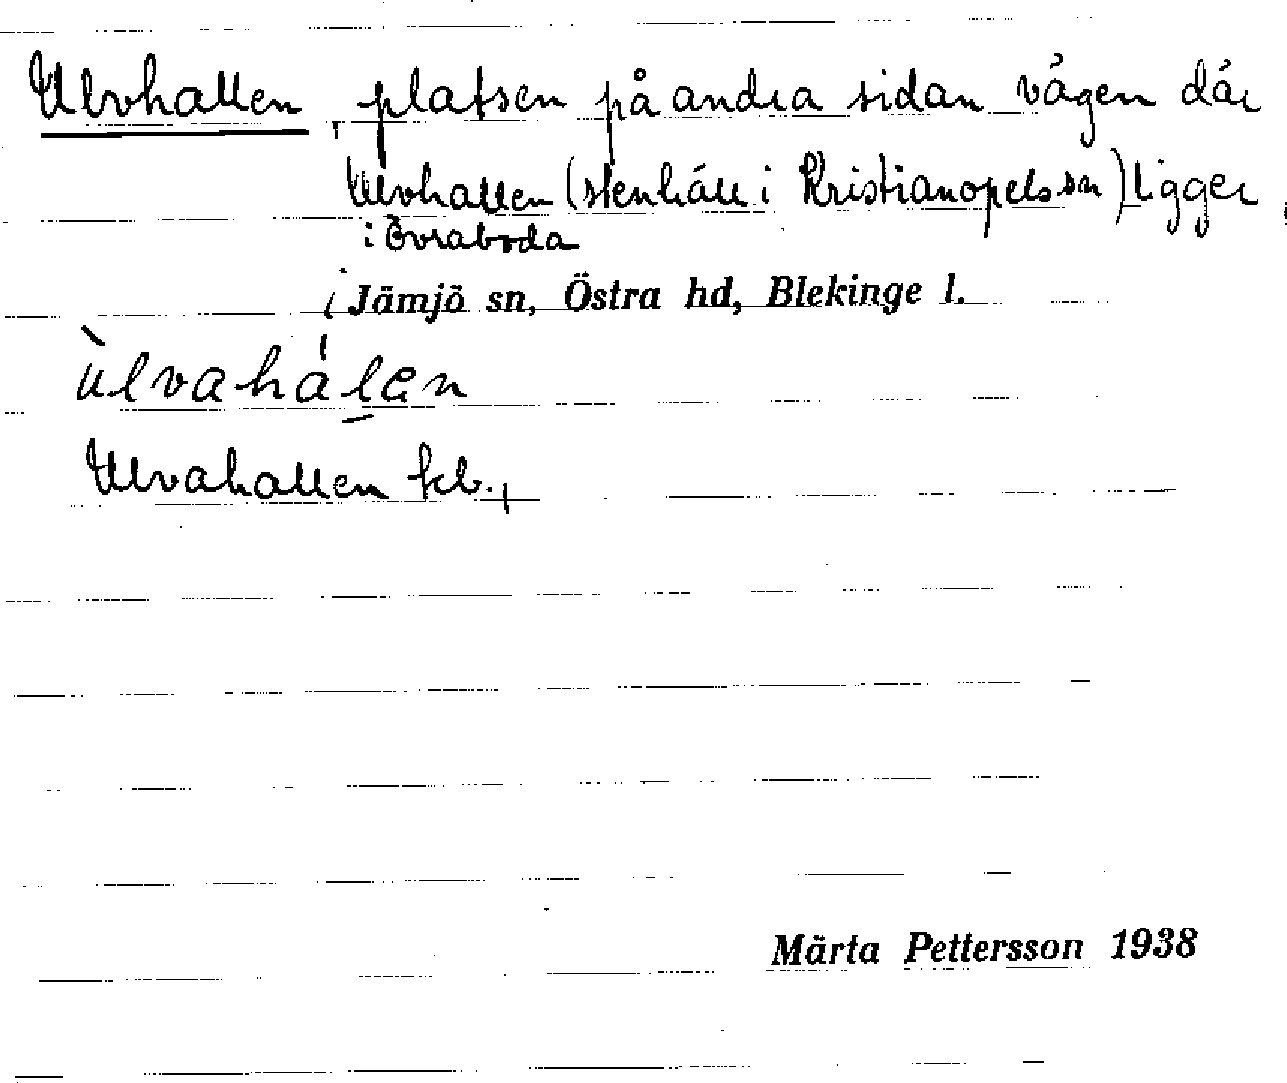 Ulvhallen, platsen på andra sidan vägen där
Ulvhallen (stenhäll i Kristianopels sn) ligger,
i Övraboda
i Jämjö sn, Östra hd, Blekinge l.
ùlvahálen
Ulvahallen
Märta Pettersson 1938